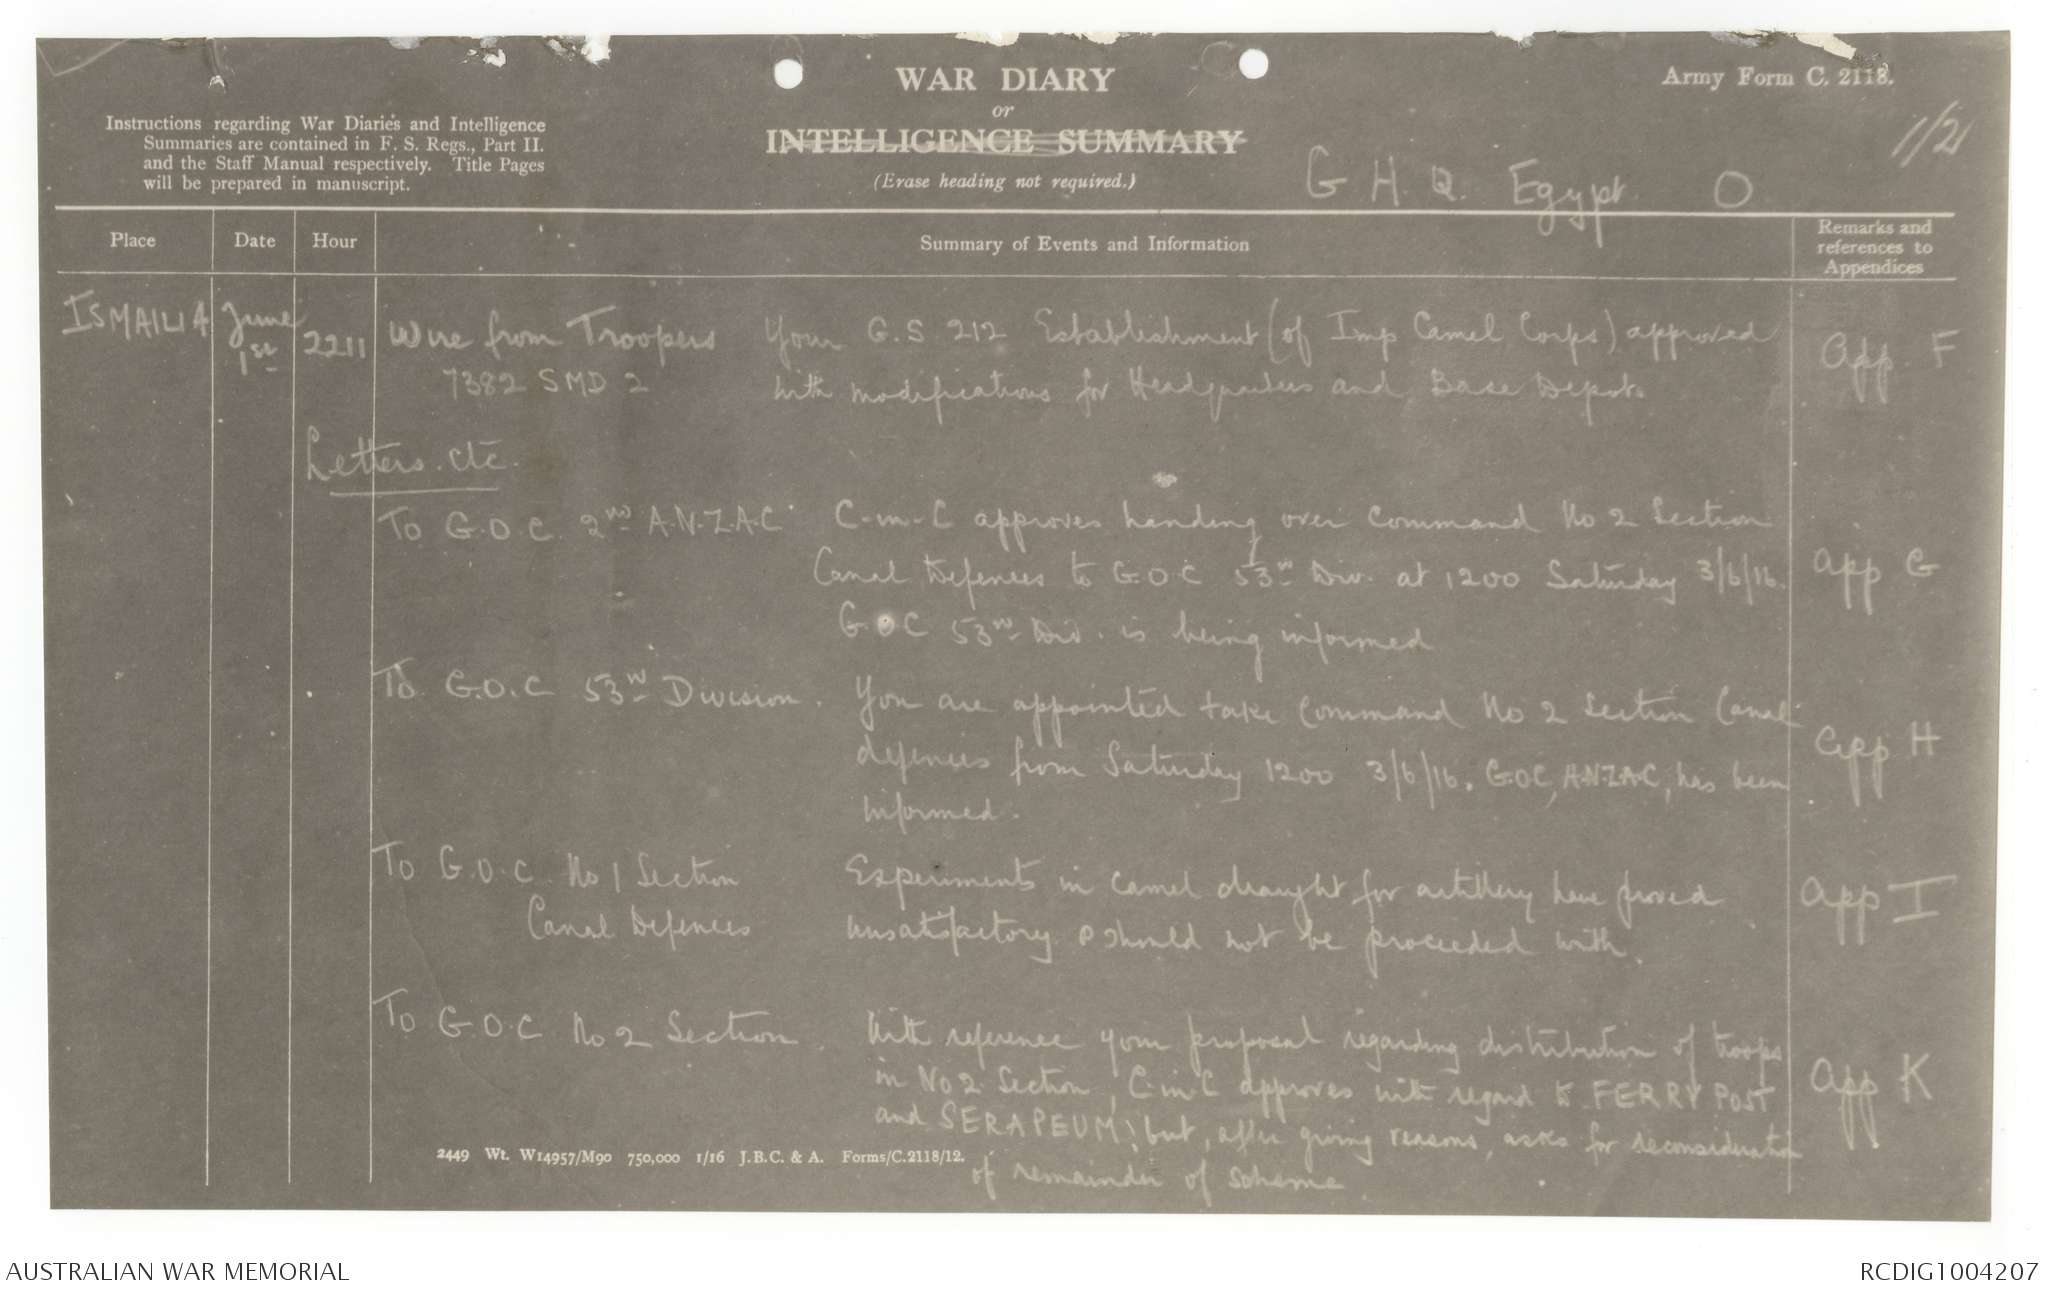 WAR DIARY
or
INTELLIGENCE SUMMARY
(Erase heading not required.)
Army Form C. 2118.
Instructions regarding War Diaries and Intelligence
Summaries are contained in F. S. Regs., Part II.
and the Staff Manual respectively. Title Pages
will be prepared in manuscript.
1/21
G H. Q. Egypt. O
Place Date Hour Summary of Events and Information Remarks and references to Appendices
ISMAILIA June 1st 2211 Wire from Troopers Your G.S. 212 Establishment (of Imp Camel Corps) approved App F
7382 SMD 2 with modifications for Headquarters and Base Depot.
Letters. etc.
To G.O.C. 2nd A.N.Z.A.C. C-in-C approves handing over command No 2 Section
Canal Defences to G.O.C 53rd Div. at 1200 Saturday 3/6/16. App G
G.O.C 53rd Div. is being informed
To G.O.C 53rd Division. You are appointed take command No 2 Section Canal
defences from Saturday 1200 3/6/16. G.O.C, A.N.Z.A.C, has been App H
informed.
To G.O.C. No 1 Section Experiments in camel draught for artillery have proved App I
Canal Defences unsatisfactory & should not be proceeded with.
To G.O.C No 2 Section. With reference your proposal regarding distribution of troops
in No 2 Section, C-in-C approves with regard to FERRY POST App K
and SERAPEUM; but, after giving reasons, asks for reconsideration
of remainder of scheme
2449 Wt. W14957/M90 750,000 1/16 J.B.C. & A. Forms/C.2118/12.
AUSTRALIAN WAR MEMORIAL
RCDIG1004207